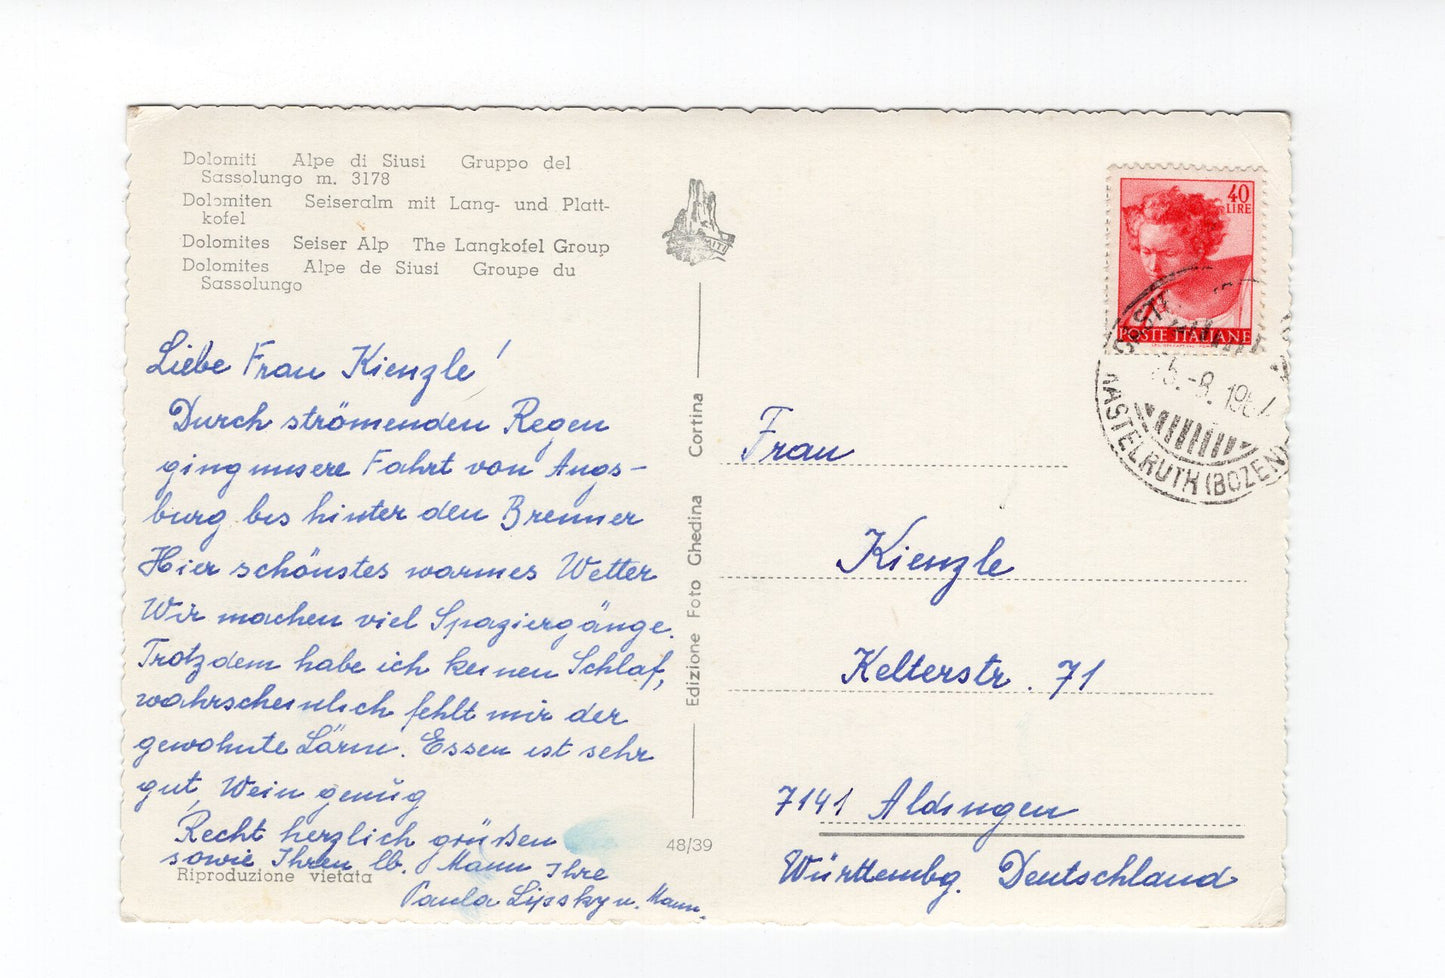 Dolomiti Alpe di Siusi Gruppo del
Sassolungo m. 3178
Dolomiten Seiseralm mit Lang- und Platt-
kofel
Dolomites Seiser Alp The Langkofel Group
Dolomites Alpe de Siusi Groupe du
Sassolungo
Liebe Frau Kienzle!
Durch strömenden Regen
ging unsere Fahrt von Augs-
burg bis hinter den Brenner
Hier schönstes warmes Wetter
Wir machen viel Spaziergänge.
Trotzdem habe ich keinen Schlaf,
wahrscheinlich fehlt mir der
gewohnte Lärm. Essen ist sehr
gut, Wein genug
Recht herzlich grüßen
sowie Ihren lb. Mann Ihre
Paula Lipsky u. Mann.
Riproduzione vietata
48/39
Edizione Foto Ghedina Cortina
40
LIRE
POSTE ITALIANE
KASTELRUTH (BOZEN)
Frau
Kienzle
Kelterstr. 71
7141 Aldingen
Württembg. Deutschland